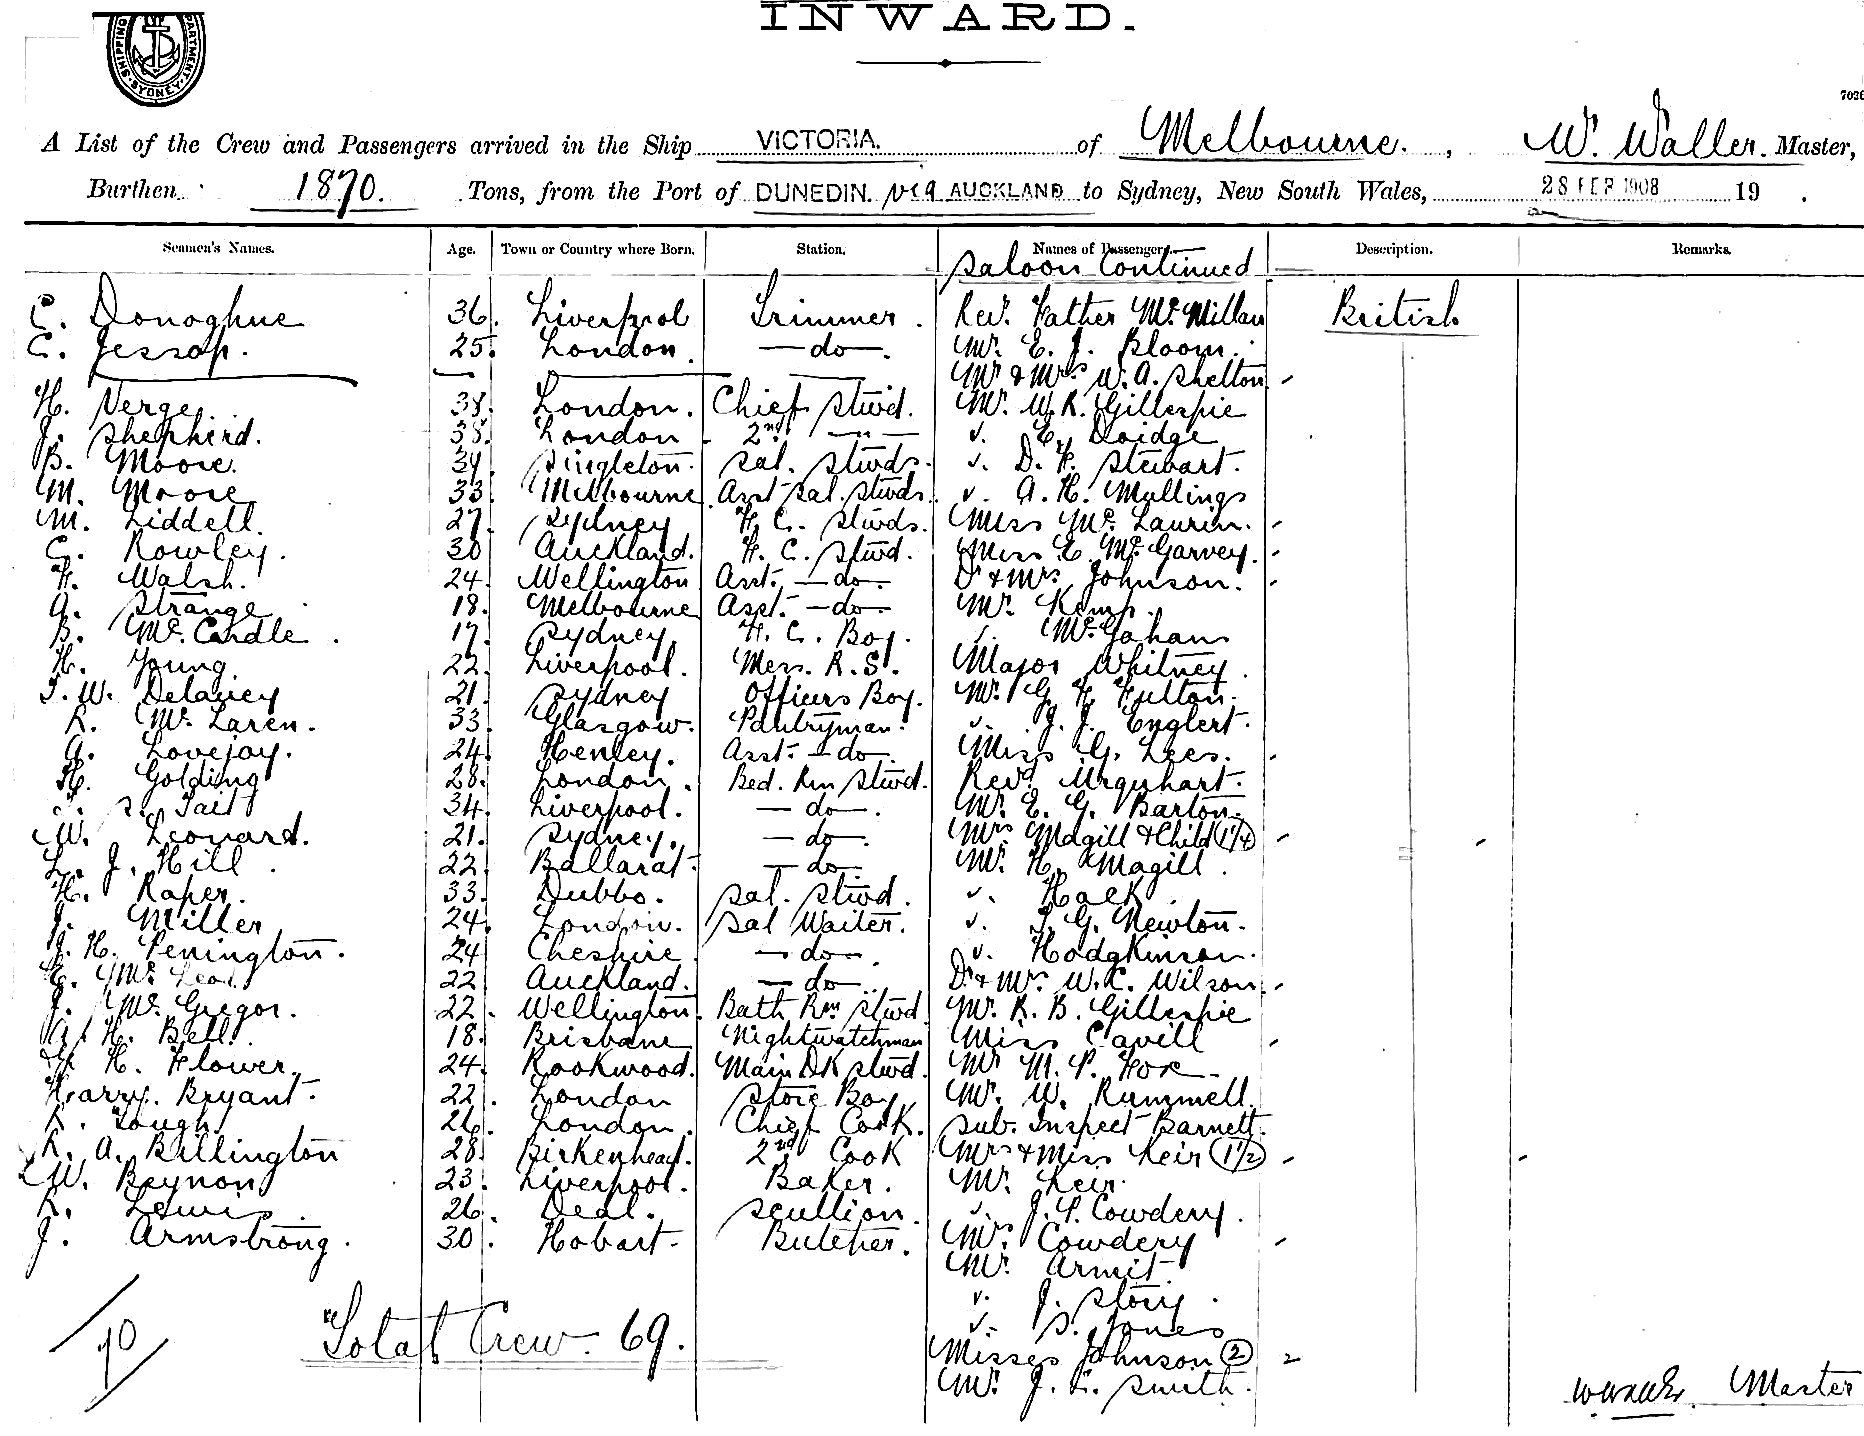 INWARD.
SHIPPING DEPARTMENT. SYDNEY.
A List of the Crew and Passengers arrived in the Ship VICTORIA. of Melbourne., W. Waller. Master,
Burthen 1870. Tons, from the Port of DUNEDIN. via AUCKLAND to Sydney, New South Wales, 28 FEB 1908 19 .
Seamen's Names. Age. Town or Country where Born. Station. Names of Passengers. Description. Remarks.
Saloon Continued
C. Donoghue 36. Liverpool Trimmer. Rev. Father Mc Millan British
C. Jessop. 25. London. — do —. Mr. E. J. Bloom.
Mr & Mrs W. A. Shelton
H. Verge. 38. London. Chief Stwd. Mr. W. R. Gillespie
J. Shepherd. 38. London 2nd — " — v. E. Doidge
B. Moore. 34. Singleton. Sal. Stwds. v. D. F. Stewart.
M. Moore 33. Melbourne Asst Sal. Stwds. v. A. H. Mullings
M. Liddell. 27. Sydney F. C. Stwds. Miss Mc Laurin.
C. Rowley. 30 Auckland. F. C. Stwd. Miss E. Mc Garvey.
F. Walsh. 24. Wellington Asst. — do —. Dr & Mrs Johnson.
A. Strange 18. Melbourne Asst. — do — Mr. Kemp.
B. Mc. Cardle. 17. Sydney F. C. Boy. v. McGahans
H. Young 22. Liverpool. Mess. R. S. Major Whitney
T. W. Delaney 21. Sydney Officers Boy. Mr. G. F. Fulton.
R. Mc. Laren. 33. Glasgow. Pantryman. v. J. J. Englert.
A. Lovejoy. 24. Henley. Asst. — do Miss G. Lees.
H. Golding 28. London. Bed. Rm Stwd. Revd Urquhart.
S. Tait 34. Liverpool. — do —. Mr. E. G. Barton.
W. Leonard. 21. Sydney. — do —. Mrs Magill & Child (1¼)
L. J. Hill. 22. Ballarat. — do — Mr. H. Magill.
H. Raper. 33. Dubbo. Sal. Stwd. v. Hack
J. Miller 24. London. Sal Waiter. v. T. G. Newton.
J. H. Penington. 24 Cheshire — do —. v. Hodgkinson.
Mc Leod. 22 Auckland. — do — Dr & Mrs W. C. Wilson
J. Mc. Gregor. 22. Wellington. Bath Rm Stwd Mr. R. B. Gillespie
H. Bell. 18. Brisbane Nightwatchman Miss Cavill
H. Flower. 24. Rookwood. Main DK Stwd. Mr M. P. Fox
Harry. Bryant. 22. London Store Boy Mr. W. Rummell.
R. Gough 26. London. Chief Cook. Sub. Inspect Barnett.
R. A. Billington 28. Birkenhead. 2nd Cook Mrs & Miss Keir (1½)
W. Beynon 23. Liverpool. Baker. Mr. Keir.
R. Lewis. 26. Deal. Scullion. v. J. P. Cowdery.
J. Armstrong. 30. Hobart. Butcher. Mrs. Cowdery
Mr. Armit.
v. J. Story.
v. S. Jones
70 Total Crew. 69.
Misses Johnson (2) 2
Mr. J. L. Smith.
Master